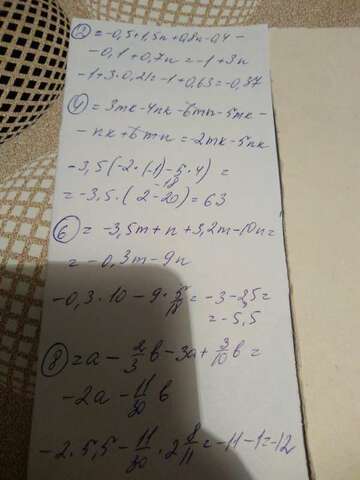 ② = -0,5+1,5n+0,8n-0,4-
-0,1+0,7n = -1+3n
-1+3·0,21=-1+0,63=-0,37
④ = 3mk-4nk-6mn-5mk-
-nk+6mn=-2mk-5nk
-3,5(-2·(-1)-5·4)=
-18
=-3,5·(2-20)=63
⑥ = -3,5m+n+3,2m-10n=
= -0,3m-9n
-0,3·10-9·5/18=-3-2,5=
=-5,5
⑧ = a-2/3b-3a+3/10b=
-2a-11/30b
-2·5,5-11/30·2 8/11=-11-1=-12